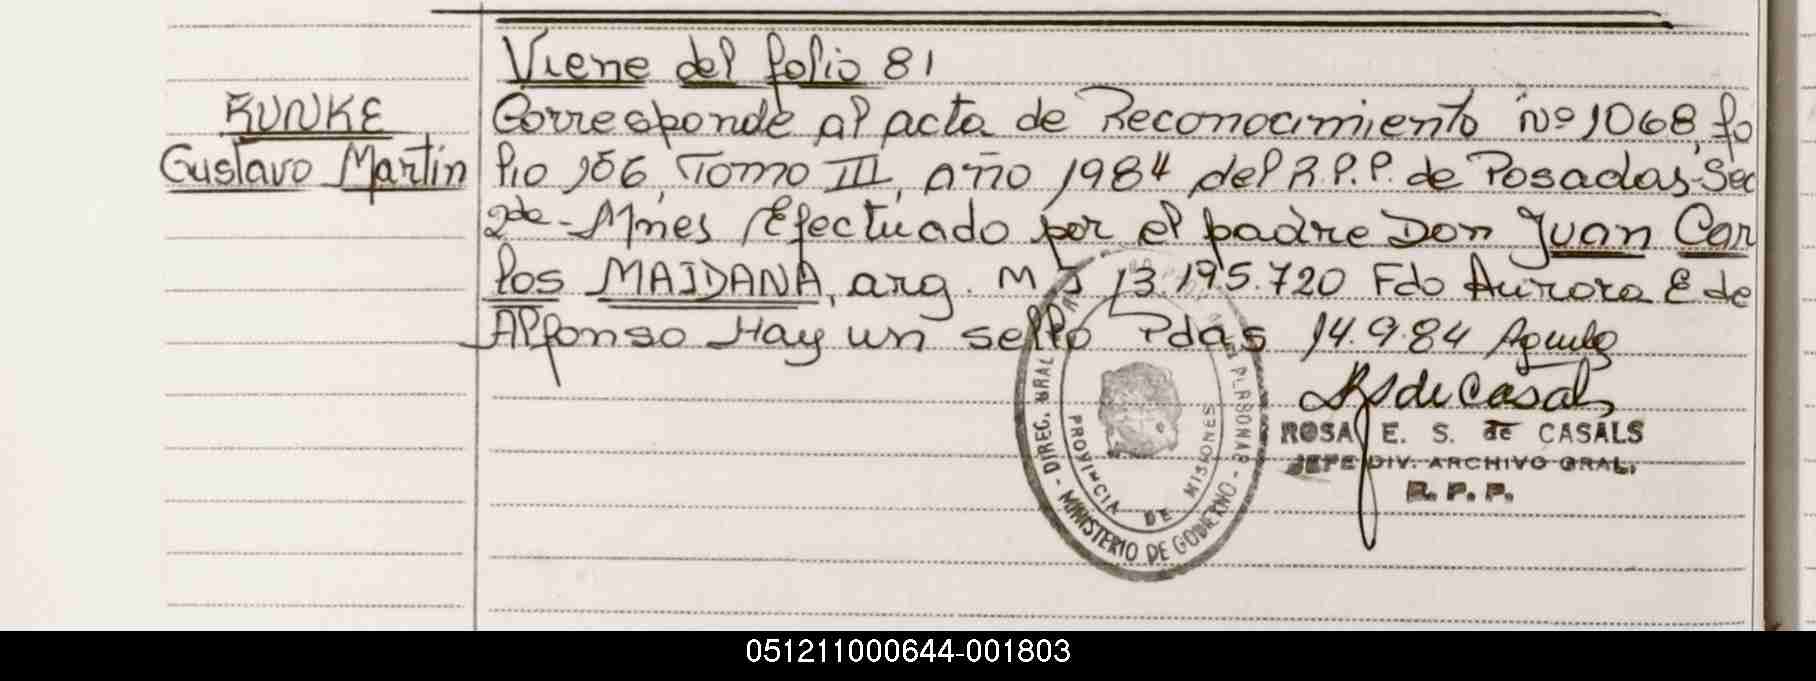 Viene del folio 81
RUNKE
Gustavo Martin
Corresponde al acta de Reconocimiento Nº 1068, fo
lio 156, Tomo III, año 1984 del R.P.P. de Posadas-Sec
2da- Mnes Efectuado por el padre Don Juan Car
los MAIDANA, arg. M I 13.195.720 Fdo Aurora E de
Alfonso Hay un sello Pdas 14.9.84
ROSA E. S. de CASALS
JEFE DIV. ARCHIVO GRAL.
R. P. P.
DIREC. GRAL
PERSONAS
MINISTERIO DE GOBIERNO
PROVINCIA DE MISIONES
051211000644-001803